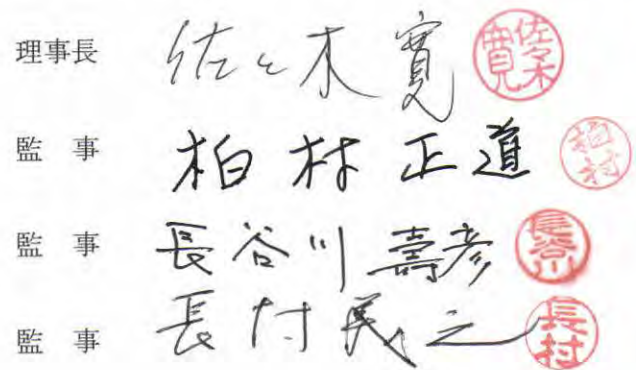 理事長 佐々木寛 佐々木寛
監 事 柏村正道 柏村
監 事 長谷川壽彦 長谷川
監 事 長村民之 長村